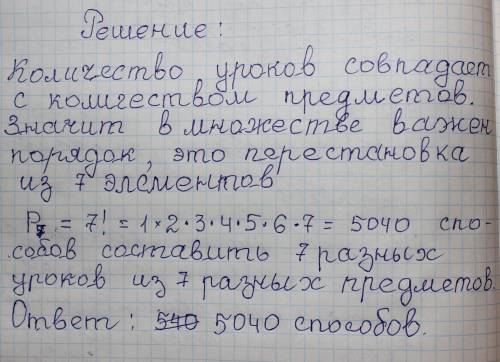 Решение:
Количество уроков совпадает
с количеством предметов.
Значит в множестве важен
порядок, это перестановка
из 7 элементов
P₇ = 7! = 1×2·3·4·5·6·7 = 5040 спо-
собов составить 7 разных
уроков из 7 разных предметов.
Ответ: 540 5040 способов.